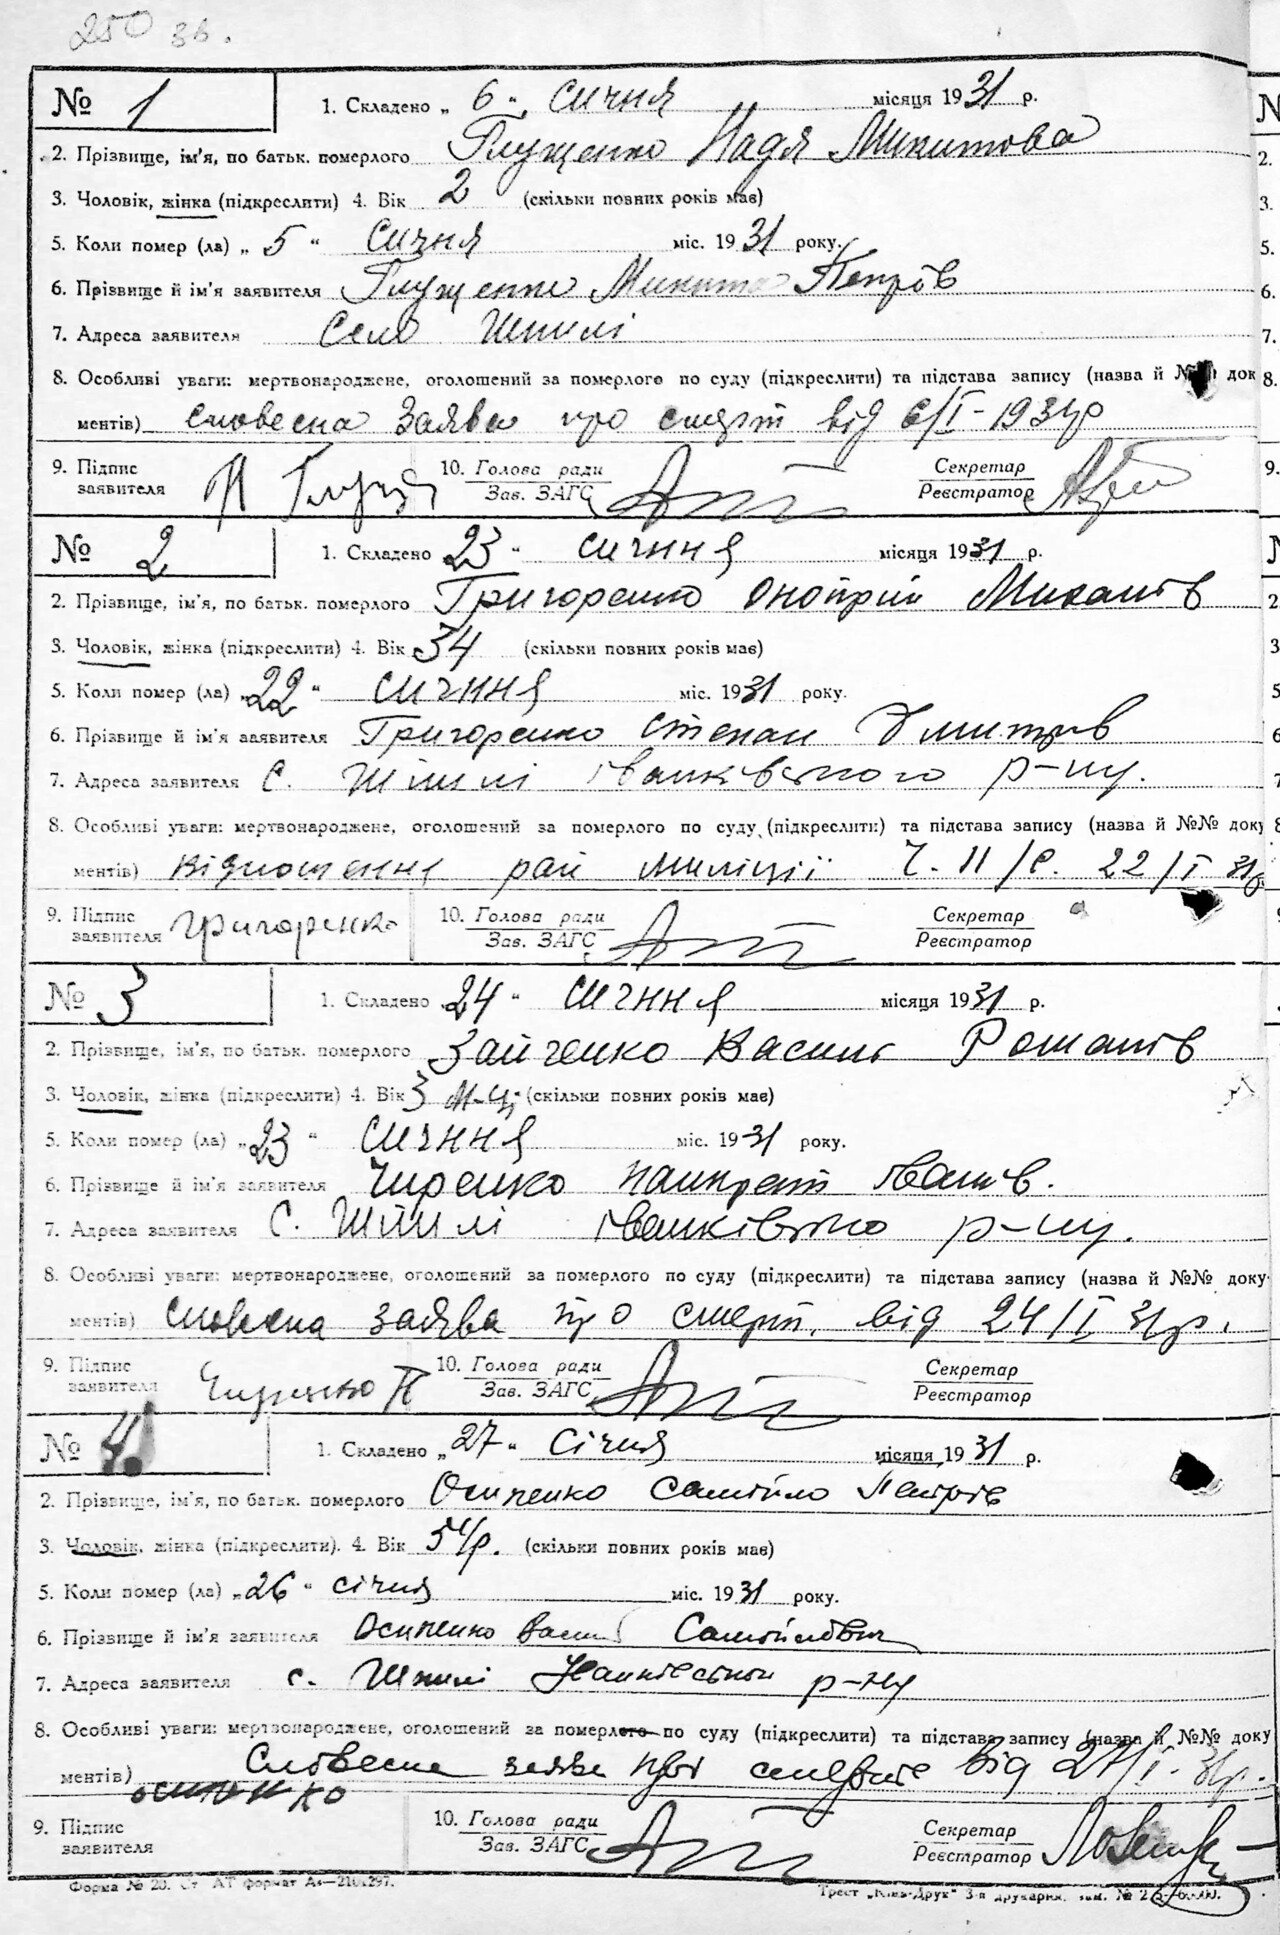 250 зв.
№ 1 1. Складено „ 6 “ сичня місяця 1931 р.
2. Прізвище, ім'я, по батьк. померлого Глущенко Надя Микитова
3. Чоловік, жінка (підкреслити) 4. Вік 2 (скільки повних років має)
5. Коли помер (ла) „ 5 “ Сичня міс. 1931 року.
6. Прізвище й ім'я заявителя Глущенко Микита Петрів
7. Адреса заявителя Село Шпилі
8. Особливі уваги: мертвонароджене, оголошений за померлого по суду (підкреслити) та підстава запису (назва й №№ док
ментів) словесна заява про смерть від 6/I-1931р
9. Підпис заявителя 10. Голова ради Зав. ЗАГС Секретар Реєстратор
№ 2 1. Складено „23“ сичння місяця 1931 р.
2. Прізвище, ім'я, по батьк. померлого Григоренко Оноприй Михалів
3. Чоловік, жінка (підкреслити) 4. Вік 34 (скільки повних років має)
5. Коли помер (ла) „22“ сичння міс. 1931 року.
6. Прізвище й ім'я заявителя Григоренко Степан Дмитрів
7. Адреса заявителя С. Шпилі іванківського р-ну.
8. Особливі уваги: мертвонароджене, оголошений за померлого по суду (підкреслити) та підстава запису (назва й №№ доку
ментів) відношення рай миліції Ч. 11/с. 22/I 31р
9. Підпис заявителя Григоренко 10. Голова ради Зав. ЗАГС Секретар Реєстратор
№ 3 1. Складено „24“ сичння місяця 1931 р.
2. Прізвище, ім'я, по батьк. померлого Зайченко Василь Романів
3. Чоловік, жінка (підкреслити) 4. Вік 3 м-ці (скільки повних років має)
5. Коли помер (ла) „23“ сичння міс. 1931 року.
6. Прізвище й ім'я заявителя Чиренко панкрат іванів.
7. Адреса заявителя С. Шпилі іванківсько р-ну.
8. Особливі уваги: мертвонароджене, оголошений за померлого по суду (підкреслити) та підстава запису (назва й №№ доку
ментів) словесна заява про смерть. від 24/I 31р.
9. Підпис заявителя Чиренко П 10. Голова ради Зав. ЗАГС Секретар Реєстратор
№ 4 1. Складено „27“ Січня місяця 1931 р.
2. Прізвище, ім'я, по батьк. померлого Осипенко Самійло Петрів
3. Чоловік, жінка (підкреслити). 4. Вік (скільки повних років має)
5. Коли помер (ла) „26“ січня міс. 1931 року.
6. Прізвище й ім'я заявителя Осипенко Василь Самійлович
7. Адреса заявителя с. Шпилі р-ну
8. Особливі уваги: мертвонароджене, оголошений за померлого по суду (підкреслити) та підстава запису (назва й №№ доку
ментів) Словесна заява про від 27/I-31р.
осипенко
9. Підпис заявителя 10. Голова ради Зав. ЗАГС Секретар Реєстратор
Форма № 20. Ст АТ формат А4—210×297. Трест „Київ-Друк“ 3-я друкарня.